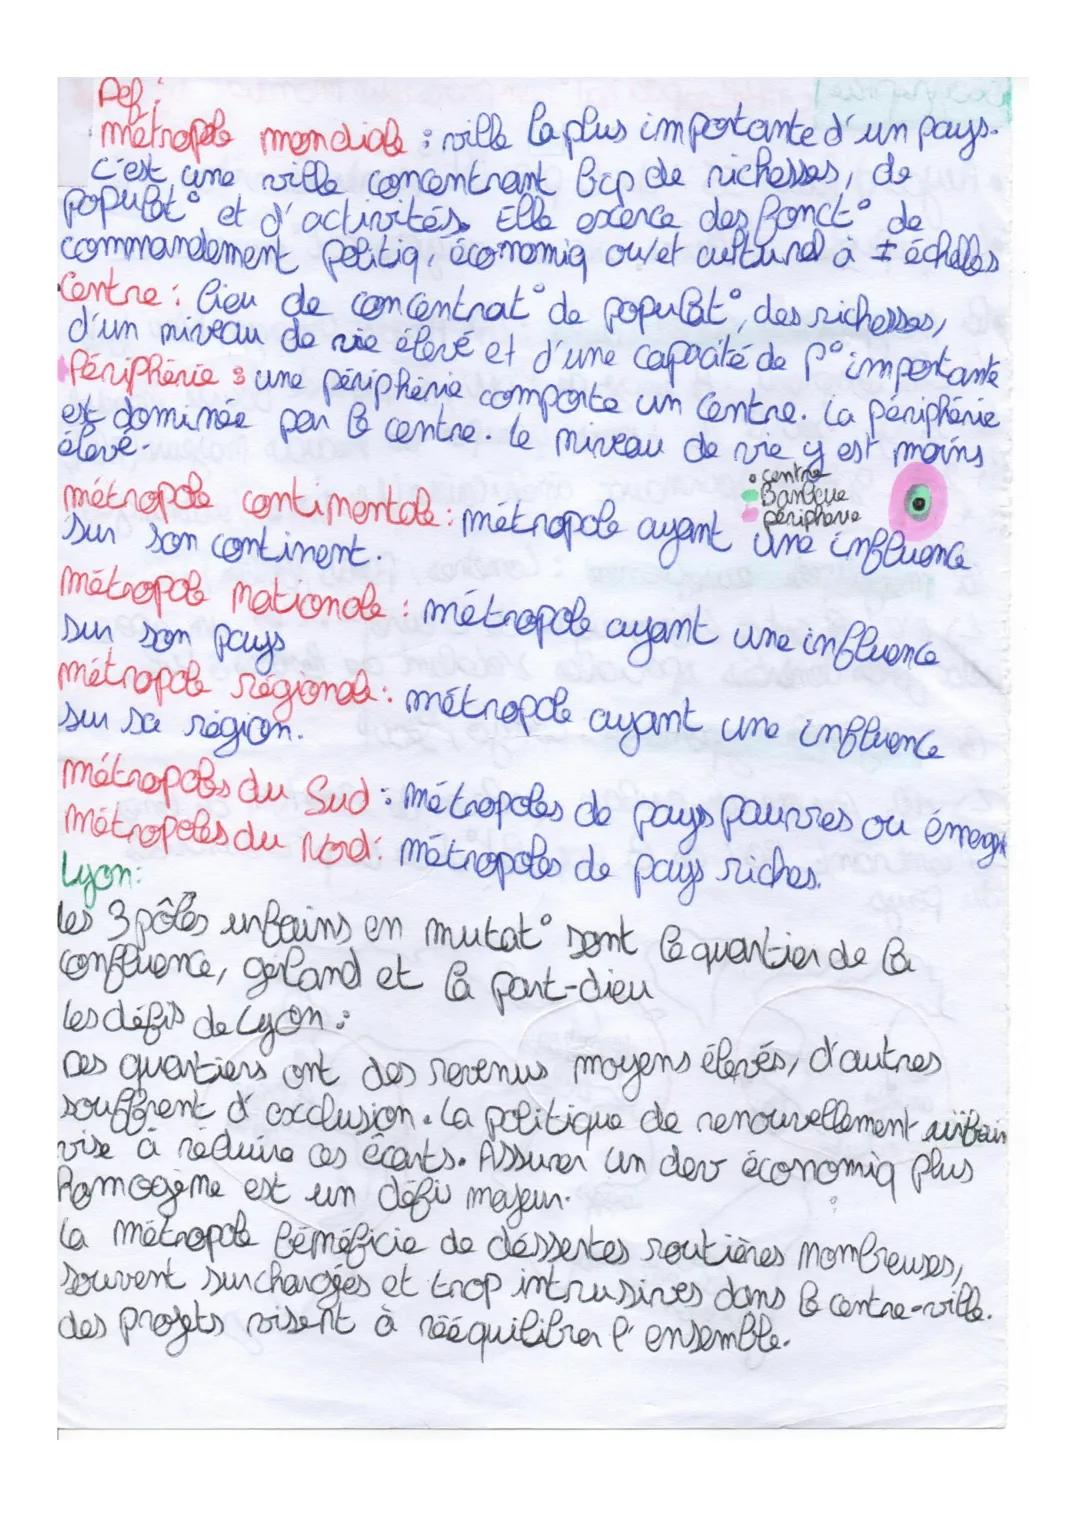 Def :
métropole mondiale : ville la plus importante d'un pays.
c'est une ville concentrant bcp de richesses, de
populat° et d'activités. Elle excerce des fonct° de
commandement politiq, économiq ou/et culturel à ≠ échelles
Centre : lieu de concentrat° de populat°, des richesses,
d'un niveau de vie élevé et d'une capacité de p° importante
Périphérie : une périphérie comporte un centre. La périphérie
est dominée par le centre. Le niveau de vie y est moins
élevé.
• centre
Banlieue
périphérie
métropole continentale : métropole ayant une influence
sur son continent.
métropole nationale : métropole ayant une influence
sur son pays
métropole régionale : métropole ayant une influence
sur sa région.
métropoles du Sud : métropoles de pays pauvres ou émerg
métropoles du Nord : métropoles de pays riches.
Lyon :
les 3 pôles urbains en mutat° sont le quartier de la
confluence, gerland et la part-dieu
les défis de Lyon :
Des quartiers ont des revenus moyens élevés, d'autres
souffrent d'exclusion. La politique de renouvellement urbain
vise à réduire ces écarts. Assurer un dev économiq plus
homogène est un défis majeur.
La métropole bénéficie de déssertes routières nombreuses,
souvent surchargées et trop intrusives dans le centre-ville.
des projets visent à rééquilibrer l'ensemble.